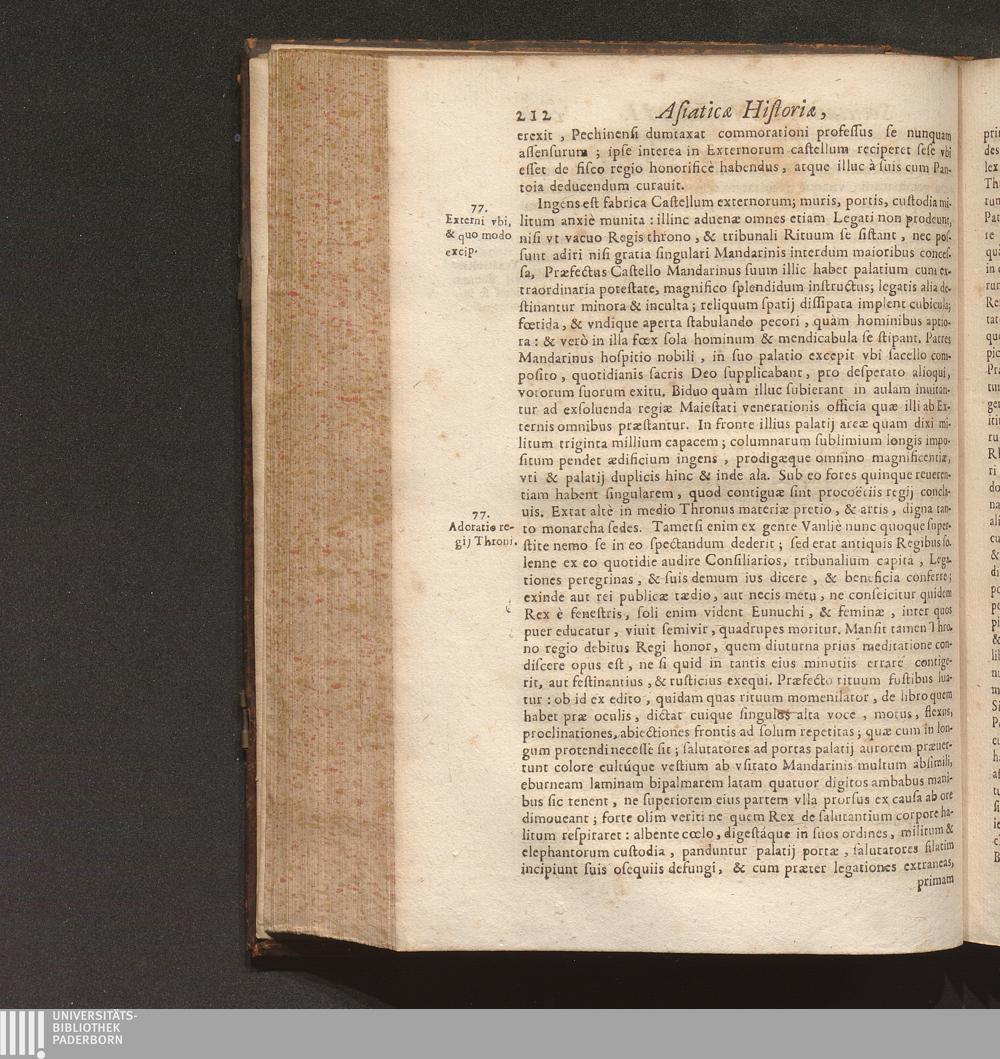 212 Aſiaticæ Hiſtoriæ,
erexit , Pechinenſi dumtaxat commorationi profeſſus ſe nunquam
aſſenſurum ; ipſe interea in Externorum caſtellum reciperet ſeſe vbi
eſſet de fiſco regio honorificè habendus , atque illuc à ſuis cum Pan-
toia deducendum curauit.
77.
Externi vbi,
& quo modo
excip.
Ingens eſt fabrica Caſtellum externorum; muris, portis, cuſtodia mi-
litum anxiè munita : illinc aduenæ omnes etiam Legati non prodeunt,
niſi vt vacuo Regis throno , & tribunali Rituum ſe ſiſtant , nec poſ-
ſunt adiri niſi gratia ſingulari Mandarinis interdum maioribus conceſ-
ſa, Præfectus Caſtello Mandarinus ſuum illic habet palatium cum ex-
traordinaria poteſtate, magnifico ſplendidum inſtructus; legatis alia de-
ſtinantur minora & inculta ; reliquum ſpatij diſſipata implent cubicula;
fœtida , & vndique aperta ſtabulando pecori , quàm hominibus aptio-
ra : & verò in illa fœx ſola hominum & mendicabula ſe ſtipant. Patres
Mandarinus hoſpitio nobili , in ſuo palatio excepit vbi ſacello com-
poſito , quotidianis ſacris Deo ſupplicabant , pro deſperato alioqui,
votorum ſuorum exitu. Biduo quàm illuc ſubierant in aulam inuitan-
tur ad exſoluenda regiæ Maieſtati venerationis officia quæ illi ab Ex-
ternis omnibus præſtantur. In fronte illius palatij areæ quam dixi mi-
litum triginta millium capacem ; columnarum ſublimium longis impo-
ſitum pendet ædificium ingens , prodigæque omnino magnificentiæ,
vti & palatij duplicis hinc & inde ala. Sub eo fores quinque reueren-
tiam habent ſingularem , quod contiguæ ſint procoëtiis regij concla-
uis. Extat altè in medio Thronus materiæ pretio , & artis , digna tan-
77.
Adoratio re-
gij Throni.
to monarcha ſedes. Tametſi enim ex gente Vanliè nunc quoque ſuper-
ſtite nemo ſe in eo ſpectandum dederit ; ſed erat antiquis Regibus ſo-
lenne ex eo quotidie audire Conſiliarios, tribunalium capita , Lega-
tiones peregrinas , & ſuis demum ius dicere , & beneficia conferre;
exinde aut rei publicæ tædio, aut necis metu , ne conſeicitur quidem
Rex è feneſtris, ſoli enim vident Eunuchi , & feminæ , inter quos
puer educatur , viuit ſemivir, quadrupes moritur. Manſit tamen Thro-
no regio debitus Regi honor, quem diuturna prius meditatione con-
diſcere opus eſt , ne ſi quid in tantis eius minutiis errare contige-
rit, aut feſtinantius , & ruſticius exequi. Præfecto rituum fuſtibus lua-
tur : ob id ex edito , quidam quas rituum momenilator , de libro quem
habet præ oculis , dictat cuique ſingulos alta voce , motus , flexus,
proclinationes, abiectiones frontis ad ſolum repetitas ; quæ cum in lon-
gum protendi neceſſe ſit ; ſalutatores ad portas palatij aurorem præuer-
tunt colore cultúque veſtium ab vſitato Mandarinis multum abſimili,
eburneam laminam bipalmarem latam quatuor digitos ambabus mani-
bus ſic tenent , ne ſuperiorem eius partem vlla prorſus ex cauſa ab ore
dimoueant ; forte olim veriti ne quem Rex de ſalutantium corpore ha-
litum reſpiraret : albente cœlo, digeſtáque in ſuos ordines , militum &
elephantorum cuſtodia , panduntur palatij portæ , ſalutatores ſilatim
incipiunt ſuis oſequiis defungi , & cum præter legationes extraneas,
primam
UNIVERSITÄTS-
BIBLIOTHEK
PADERBORN